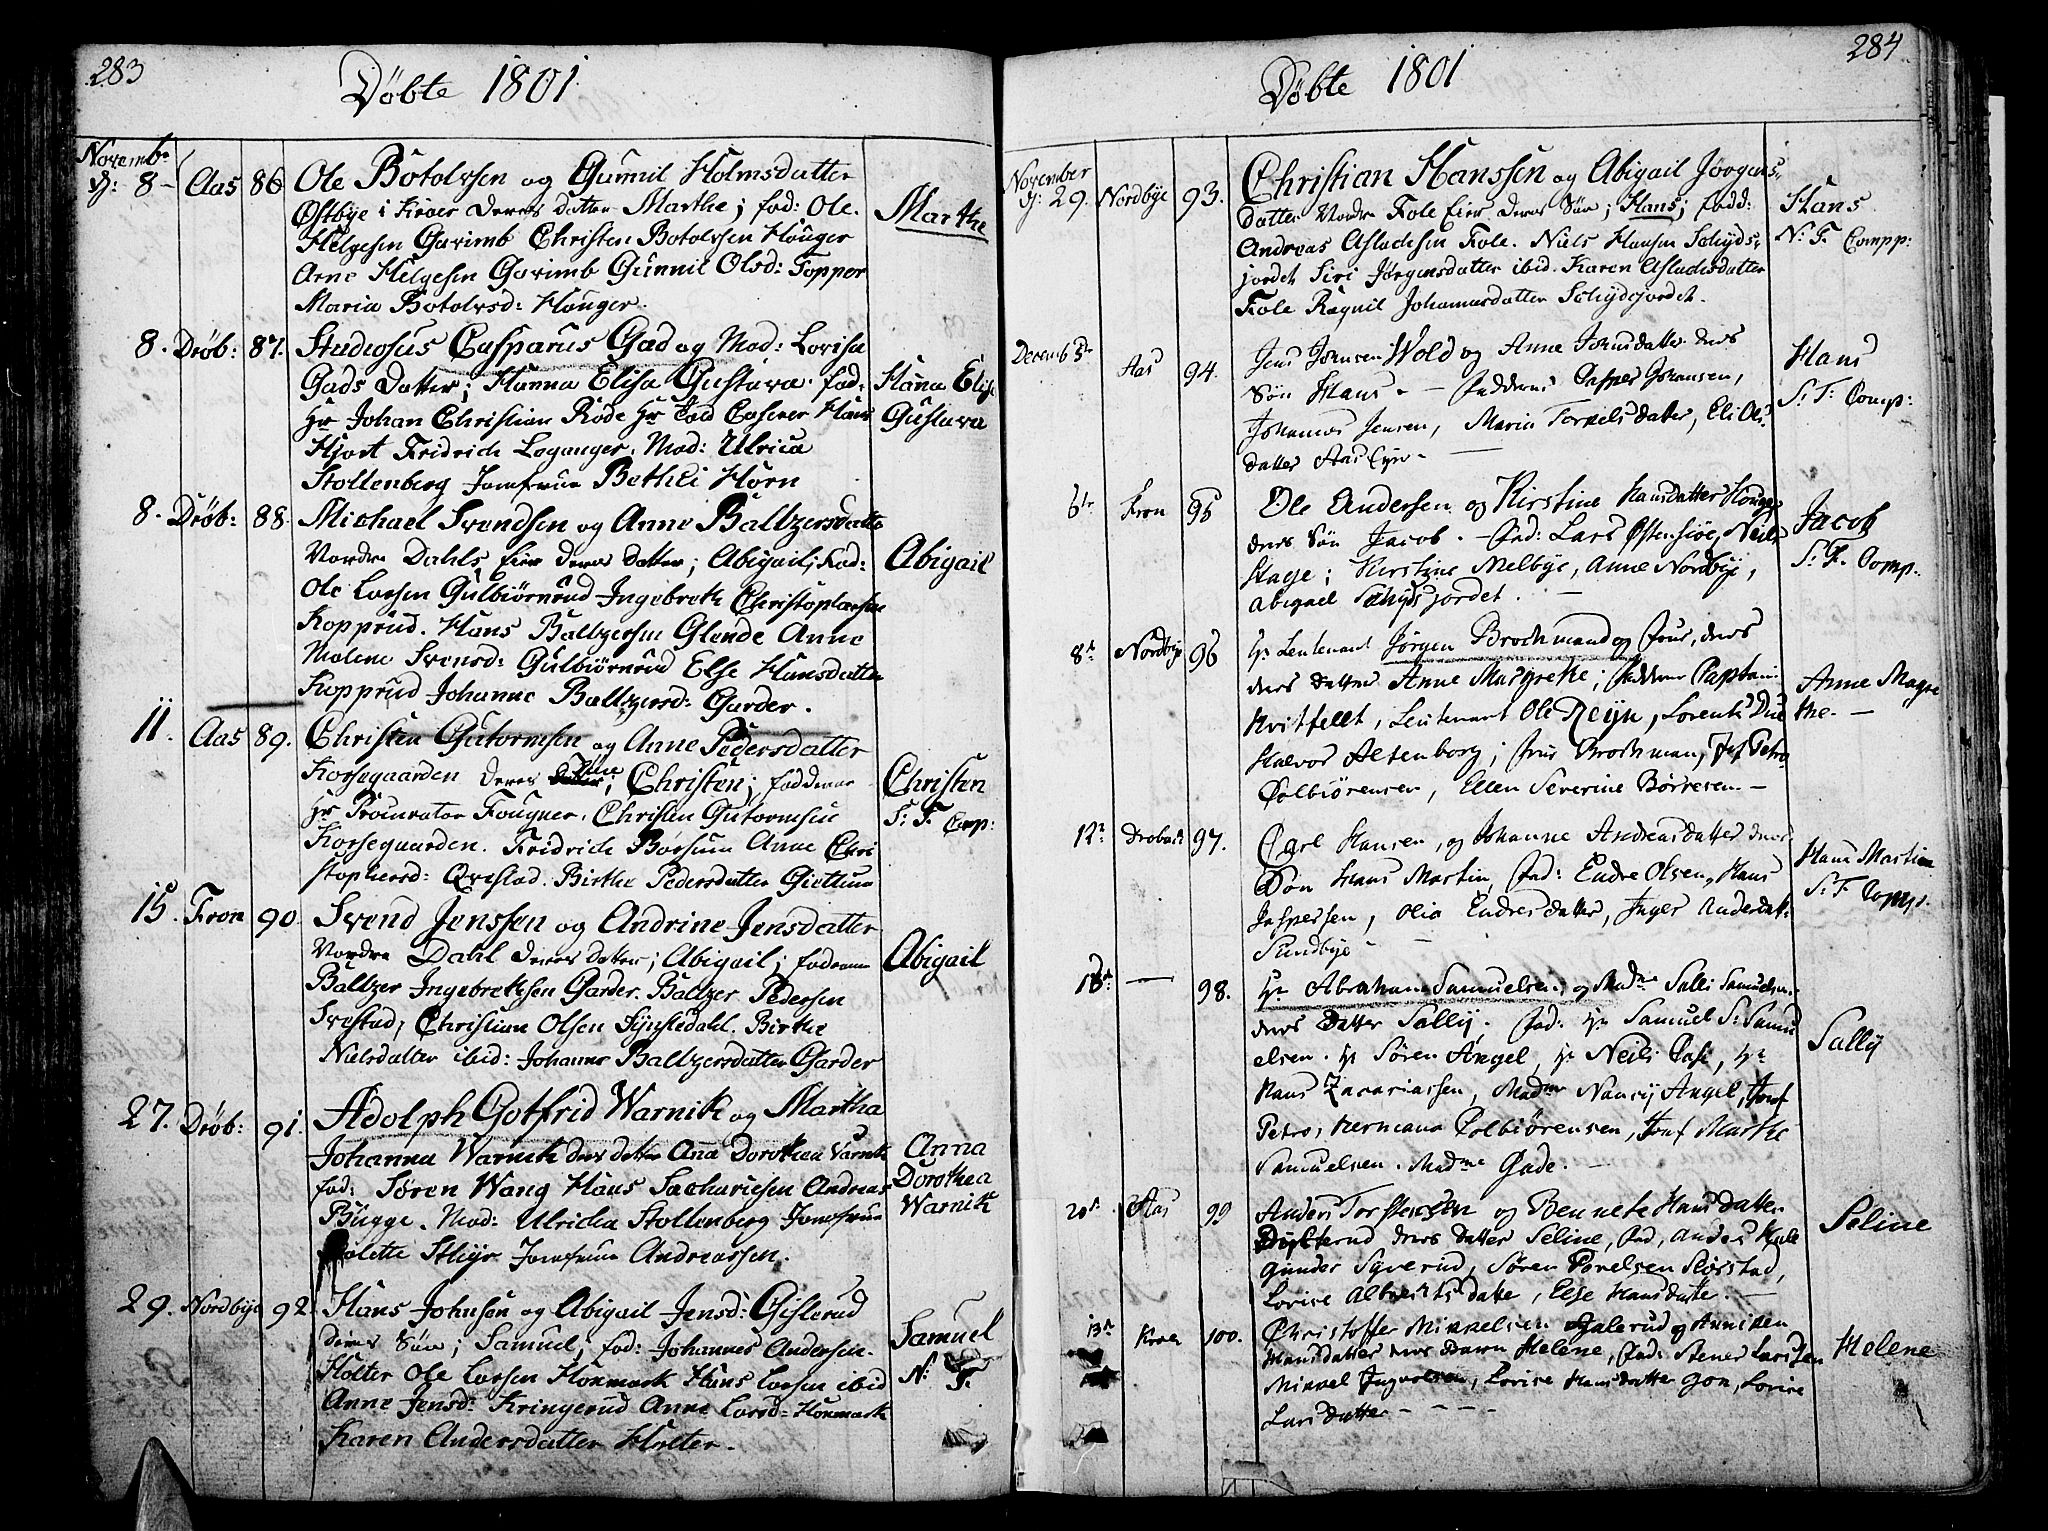 283
Døbte 1801.
Novemb:
D: 8 - Aas 86 Ole Botolvsen og Gunnil Holmsdatter
Østbye i Kroer Deres Datter Marthe; fad: Ole
Marthe
Helgesen Garimb Christen Botolvsen Houger
Arne Helgesen Garimb Gunnil Olsd: Topper
Maria Botolvsd: Houger.
8. Drøb: 87. Studiosus Casparus Gad og Mad: Lovisa
Gads Datter; Hanna Elisa Gustava. fad:
Hana Elisa
Gustava
Hr Johan Christian Rode Hr Casener Hans
Hjort Fridrich Loganger. Mad: Ulrica
Stollenberg Jomfrue Bethei Horn
8. Drøb: 88. Michael Svendsen og Anne Baltzersdatter
Nordre Dahls Eier Deres Datter; Abigail; Fad:
Abigail
Ole Larsen Gulbiørnrud Ingebreth Christophersen
Kopprud. Hans Baltzersen Glende Anne
Malene Svensd: Gulbiørnrud Else Hansdatter
Kopprud Johanne Baltzersd: Garder.
11. Aas 89. Christen Gutormsen og Anne Pedersdatter
Korsegaarden Deres Søn; Christen; fadderne
Christen
S: F. Comp:
Hr Procurator Fougner. Christen Gutormsen
Korsegaarden. Fridrich Børsum Anne Chri
stophersd: Qvestad. Birthe Pedersdatter Giettum
15. Fron 90. Svend Jenssen og Andrine Jensdatter
Nordre Dahl Deres Datter; Abigail; fadderne
Abigail
Baltzer Ingebrethsen Garder. Baltzer Pedersen
Svestad; Christian Olsen Synstedahl. Birthe
Nielsdatter ibid: Johanne Baltzersdatter Garder
27. Drøb: 91. Adolph Gotfrid Warnik og Martha
Johanna Warnik Deres Datter Ana Dorothea Varnik
Anna
Dorothea
Warnik
fad: Søren Wang Hans Sachariesen Andreas
Bugge. Mad: Ulricha Stollenberg Jomfrue
Stheyr Jomfrue Andreassen.
29. Nordbye 92. Hans Johnsøn og Abigail Jensd: Gislerud
Deres Søn; Samuel; fad: Johannes Andersen
Samuel
N: F.
Holter Ole Larsen Honmark Hans Larsen ibid
Anne Jensd: Kringerud Anne Larsd: Honmark
Karen Andersdatter Holter.
284
Døbte 1801
November
D: 29. Nordbye 93. Christian Hanssen og Abigail Jørgens-
datter Nordre Fole Eier Deres Søn; Hans; fadd:
Hans
N: F. Compp:
Andreas Asladsen Fole. Niels Hansen Schyds-
jordet Siri Jørgensdatter ibid. Karen Asladsdatter
Fole Ragnil Johannesdatter Schydsjordet.
Decemb 5te Aas 94. Jens Johnsen Wold og Anne Johnsdatter deres
Søn Hans. - Fadderne Casper Johansen,
Hans
S: F: Comp:
Johannes Jensen, Maria Torkelsdatter, Eli Ols
datter Aas Eyer.
6te Fron 95 Ole Andersen og Kirstine Hansdatter Houge
deres Søn Jacob. - fad: Lars Østensiøe, Neils
Jacob
S: F. Comp:
Stage; Kirstine Melbye, Anne Nordbye,
Abigael Schydsjordet.
8de Nordbye 96 Hr Leutenant Jørgen Brochmand og frue, deres
datter Anne Margrethe; faddere Captain
Anne Magre
the. -
Hvitfeldt, Leutenant Ole Reyn, Lorents Due
Halvor Altenborg; frue Brochman, Jf Petro
Colbiørensen, Ellen Severine Børresen. -
12te Drobach 97. Carl Hansen, og Johanne Andreasdatter deres
Søn Hans Martin, fad: Endre Olsen, Hans
Hans Martin
S: F Comp:
Jaspersen, Olia Endresdatter, Inger Andersdatt:
Sundbye
18de - 98. Hr Abraham Samuelsen, og Madme Salli Samuelsen
deres Datter Sally. fad: Hr Samuel S: Samu
Sally
elsen. Hr Søren Angel, Hr Neils Casi, Hr
Hans Zacariassen, Madme Nancy Angel, Jomf
Petro, Hermana Colbiørensen, Jomf Marthe
Samuelsen. Madme Gade. -
20de Aas 99 Anders Torstensen og Bennete Hansdatter
Dysterud deres datter Seline, fad, Anders Hule
Seline
Gunder Syverud, Søren Povelsen Rørstad,
Lovise Albrektsdatte, Else Hansdatte. -
13de Kroer 100. Christoffer Mikkelsen Galerud og Anniken
Hansdatter deres Barn Helene, fad: Stener Larssen
Helene
Mikkel Ingvolsen, Lovise Hansdatter Gon, Lovise
Larsdatter - - - -